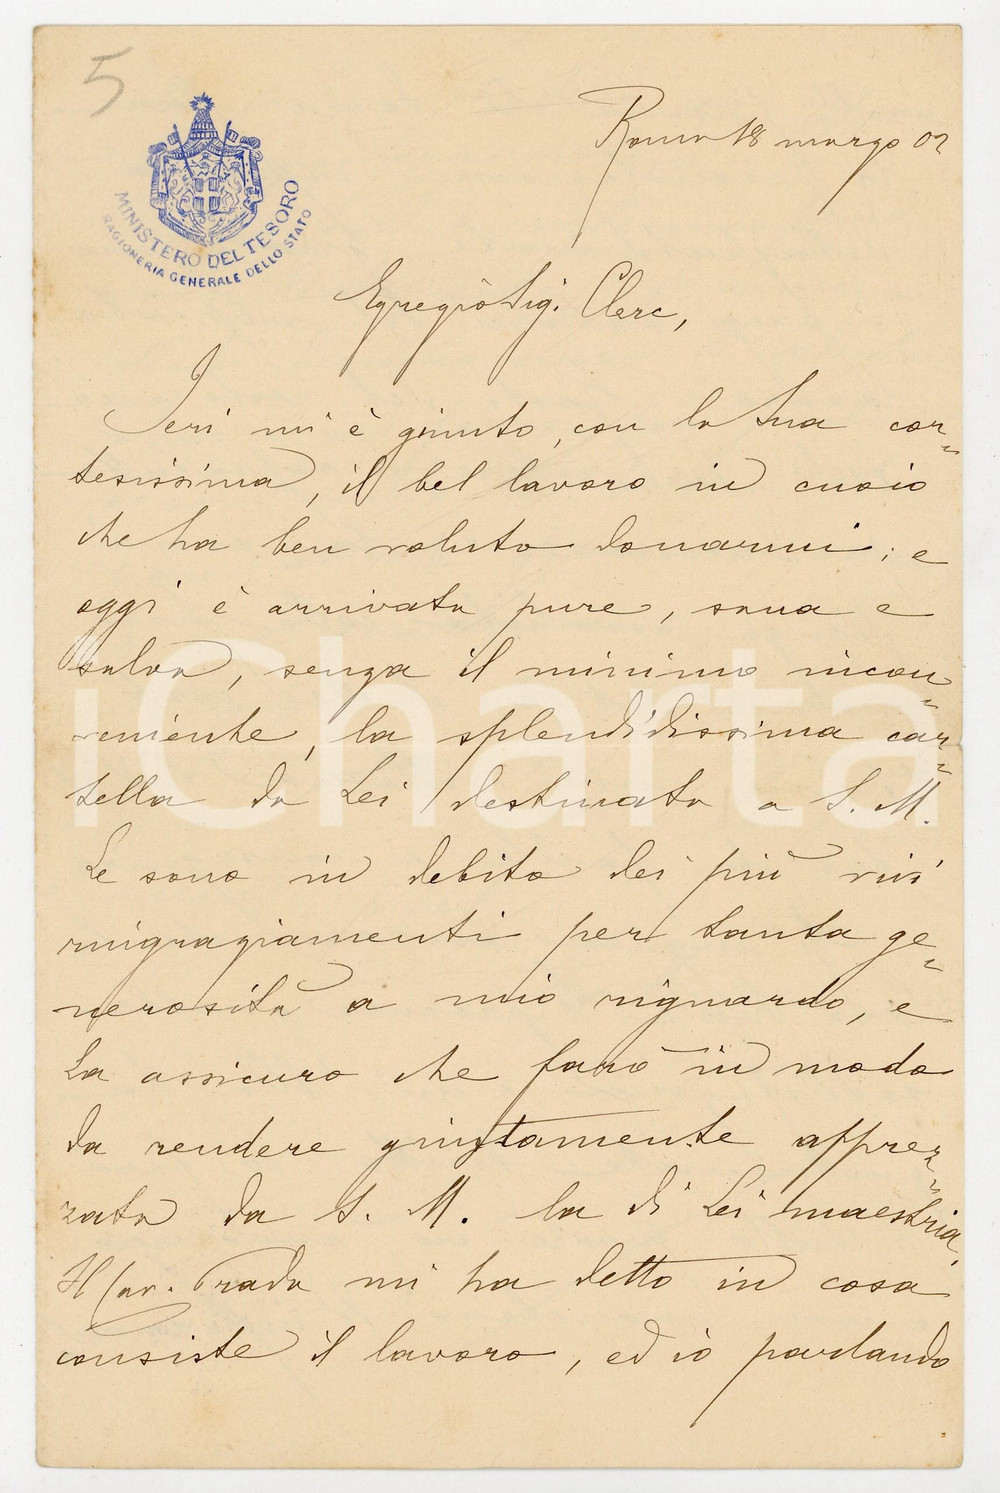 5
MINISTERO DEL TESORO
RAGIONERIA GENERALE DELLO STATO
Roma 18 marzo 02
Egregio Sig. Clerc,
Ieri mi è giunto, con la Sua cor-
tesissima, il bel lavoro in cuoio
che ha ben voluto donarmi; e
oggi è arrivata pure, sana e
salva, senza il minimo incon-
veniente, la splendidissima car-
tella da Lei destinata a S. M.
Le sono in debito dei più vivi
ringraziamenti per tanta ge-
nerosità a mio riguardo, e
La assicuro che farò in modo
da rendere giustamente apprez-
zata da S. M. la di Lei maestria.
Il Cav. Prada mi ha detto in cosa
consiste il lavoro, ed io parlando
iCharta